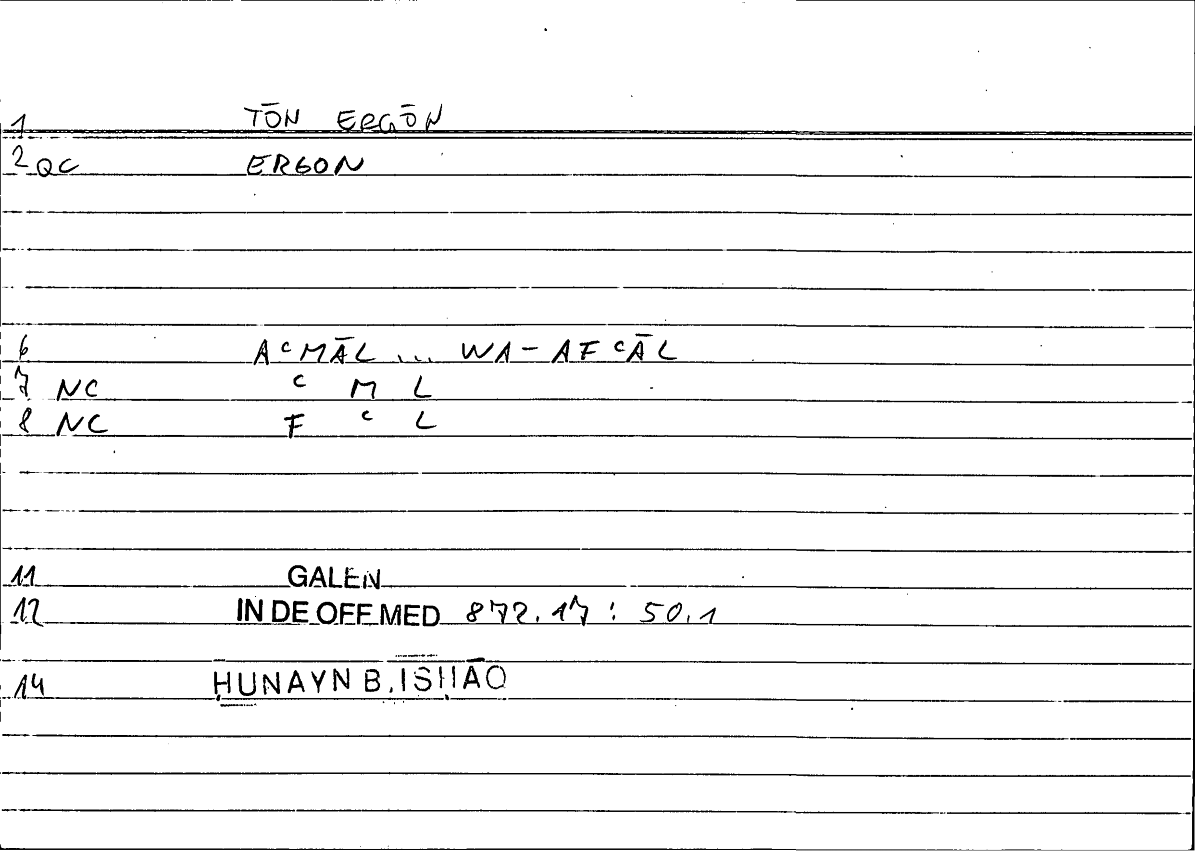 1 TŌN ERGŌN
2 QC ERGON
6 AᶜMĀL ... WA-AFᶜĀL
7 NC ᶜ M L
8 NC F ᶜ L
11 GALEN
12 IN DE OFF MED 872.17 : 50.1
14 ḤUNAYN B. ISḤĀQ